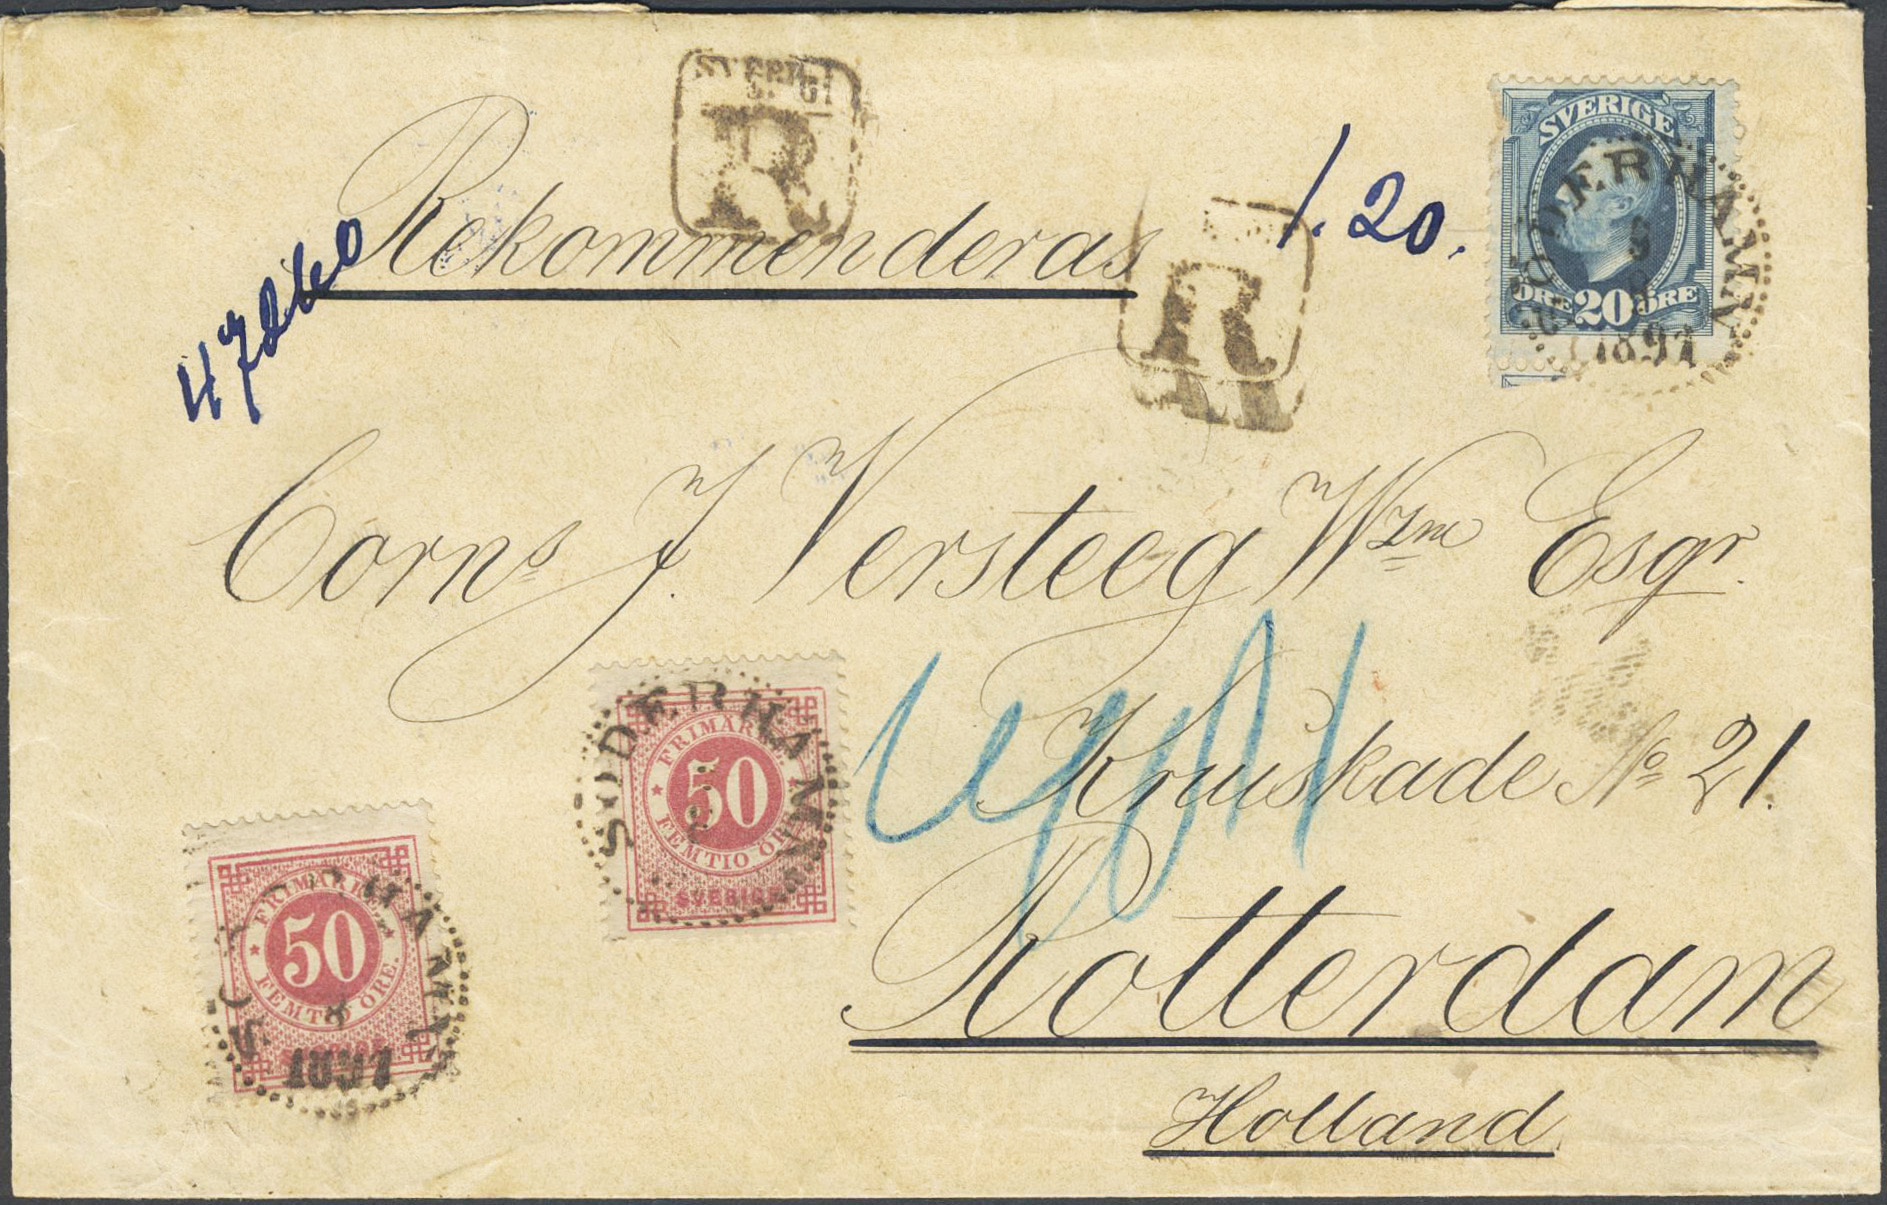 SVERIGE
R
Rekommenderas
1.20.
R
SVERIGE
ÖRE 20 ÖRE
SÖDERHAMN
1891
Corns J. Versteeg Wzm Esqr.
Kruiskade No 21.
Rotterdam
Holland
FRIMÄRKE
50
FEMTIO ÖRE.
SVERIGE
SÖDERHAMN
FRIMÄRKE
50
FEMTIO ÖRE.
SVERIGE
SÖDERHAMN
1891